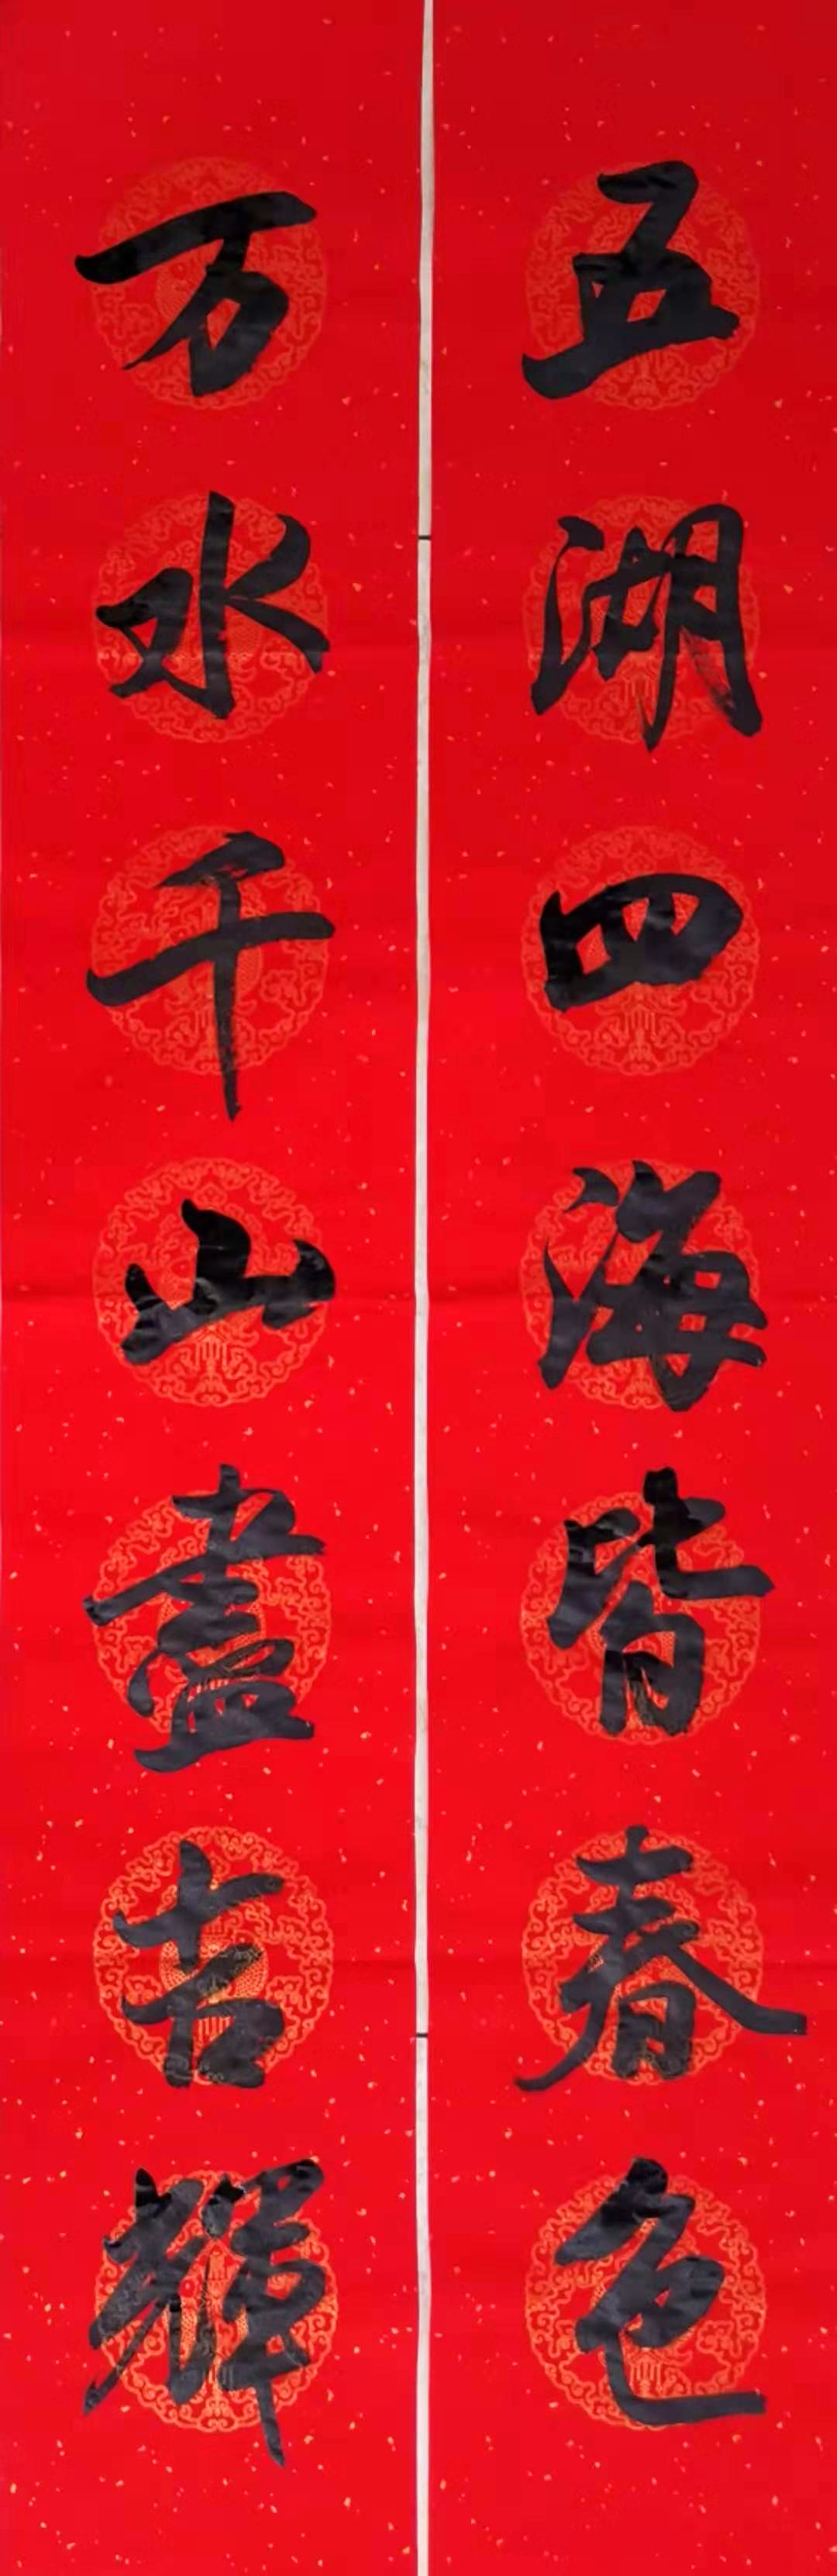 五湖四海皆春色
万水千山盡吉輝